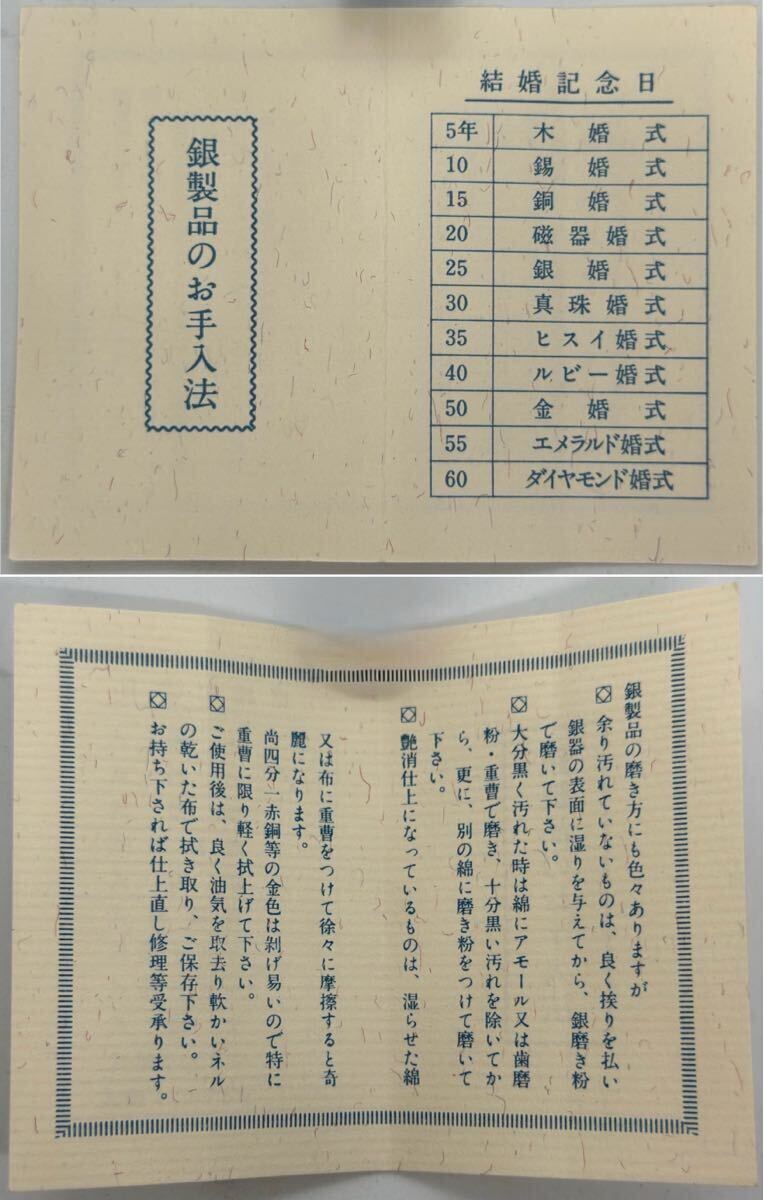 結婚記念日
5年 木婚式
10 錫婚式
15 銅婚式
20 磁器婚式
25 銀婚式
30 真珠婚式
35 ヒスイ婚式
40 ルビー婚式
50 金婚式
55 エメラルド婚式
60 ダイヤモンド婚式
銀製品のお手入法
銀製品の磨き方にも色々ありますが
余り汚れていないものは、良く挨りを払い
銀器の表面に湿りを与えてから、銀磨き粉
で磨いて下さい。
大分黒く汚れた時は綿にアモール又は歯磨
粉・重曹で磨き、十分黒い汚れを除いてか
ら、更に、別の綿に磨き粉をつけて磨いて
下さい。
艶消仕上になっているものは、湿らせた綿
又は布に重曹をつけて徐々に摩擦すると奇
麗になります。
尚四分一赤銅等の金色は剥げ易いので特に
重曹に限り軽く拭上げて下さい。
ご使用後は、良く油気を取去り軟かいネル
の乾いた布で拭き取り、ご保存下さい。
お持ち下されば仕上直し修理等受承ります。